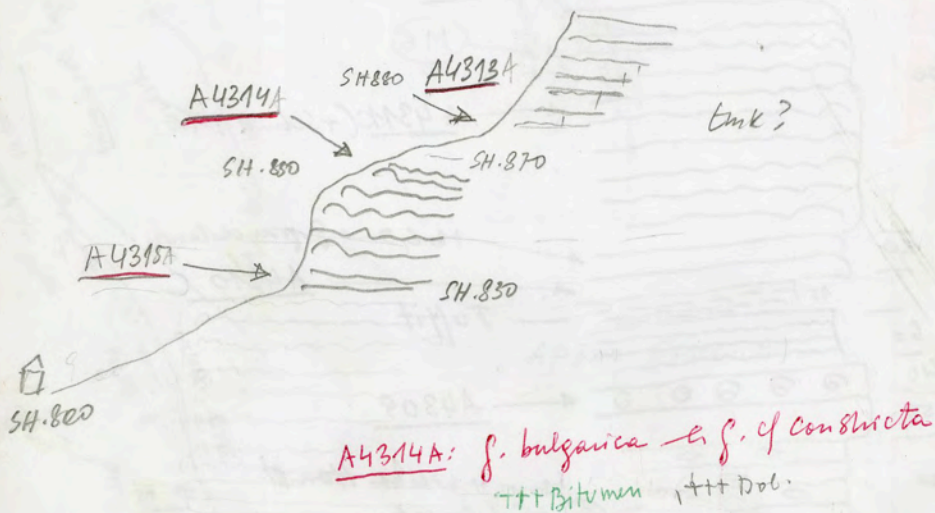 SH880 A4313A
A4314A
tmk?
SH.850
SH.870
A4315A
SH.830
SH.800
A4314A: g. bulgarica en g. cf constricta
+++ Bitumen , +++ Dol.